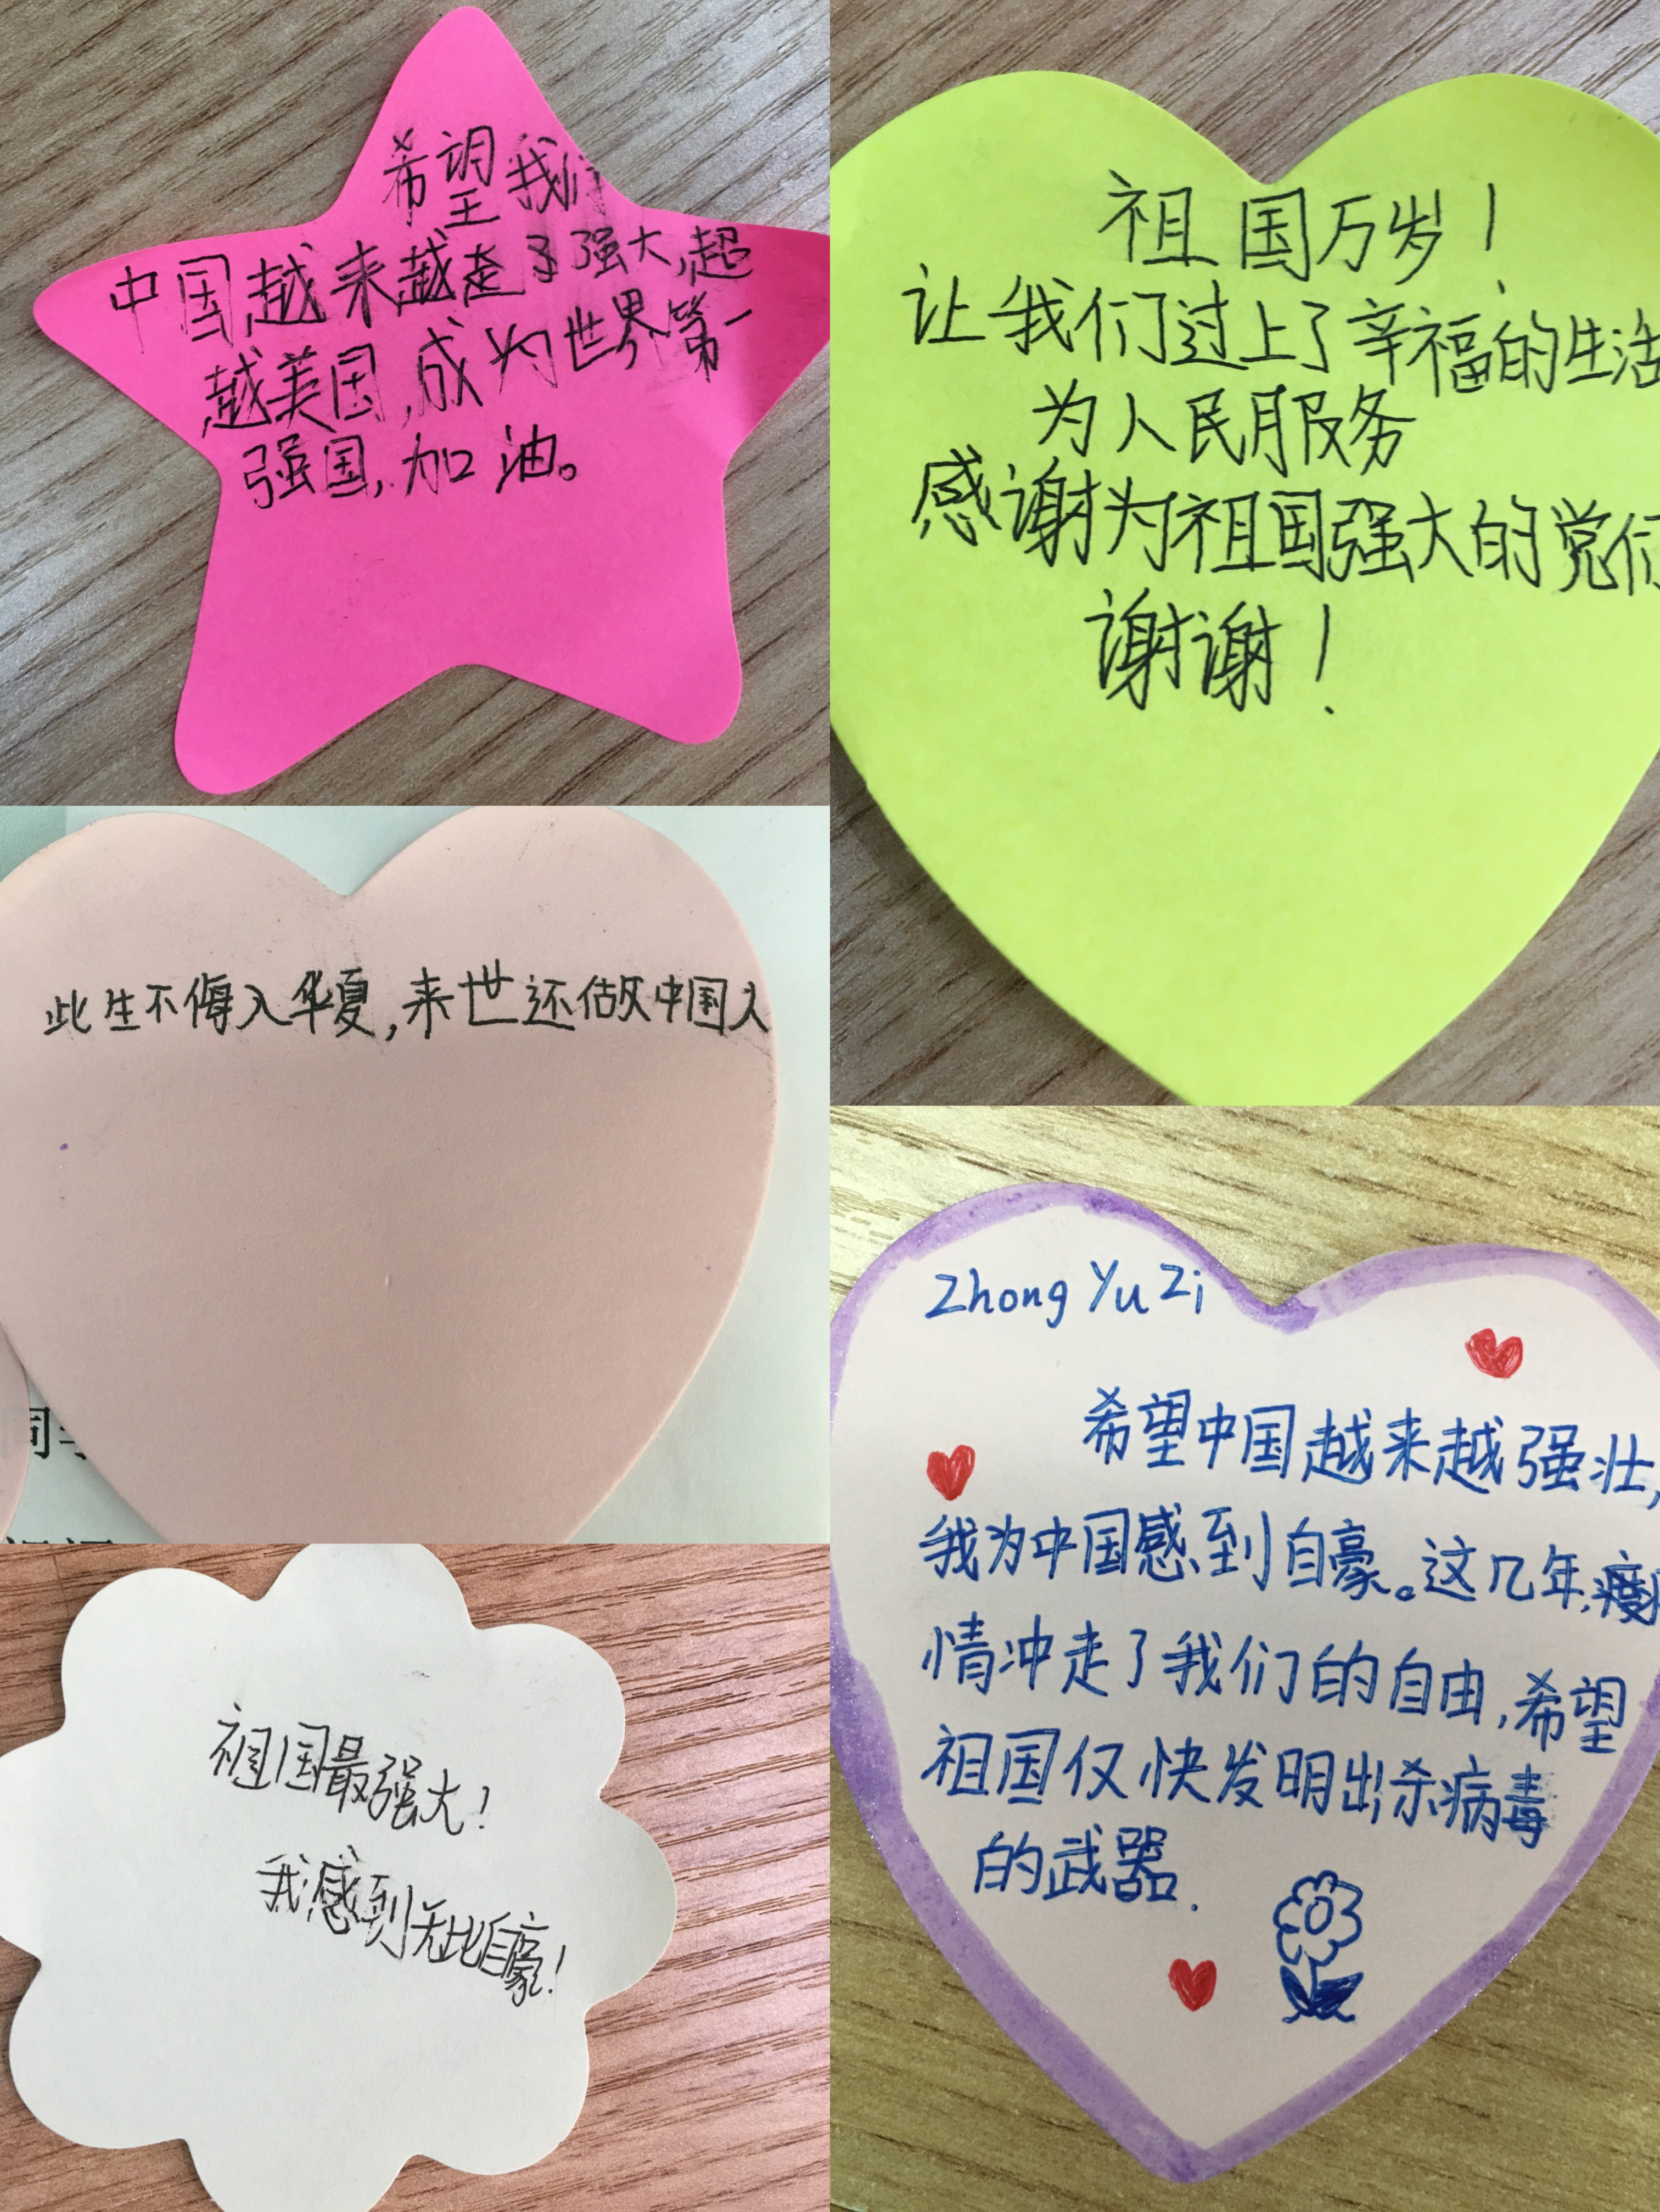 希望我们
中国越来越走了强大,超
越美国,成为世界第一
强国,加油。
祖国万岁!
让我们过上了辛福的生活
为人民服务
感谢为祖国强大的党们
谢谢!
此生不悔入华夏,来世还做中国人
祖国最强大!
我感到无比自豪!
Zhong Yu Zi
希望中国越来越强壮,
我为中国感到自豪。这几年,疫
情冲走了我们的自由,希望
祖国仅快发明出杀病毒
的武器.